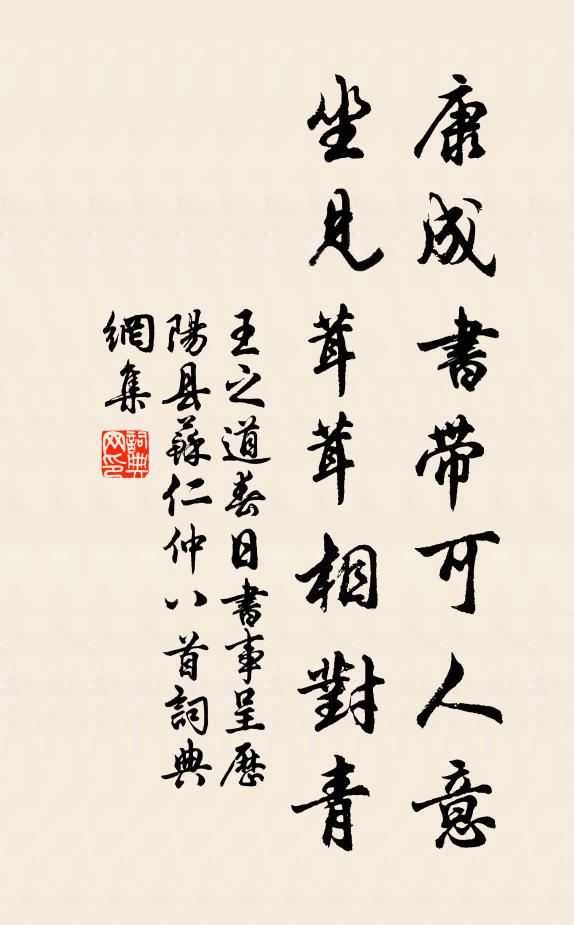 康成書帶可人意
坐見茸茸相對青
王之道春日書事呈歷
陽县蘇仁仲八首詞典
網集
詞典網印